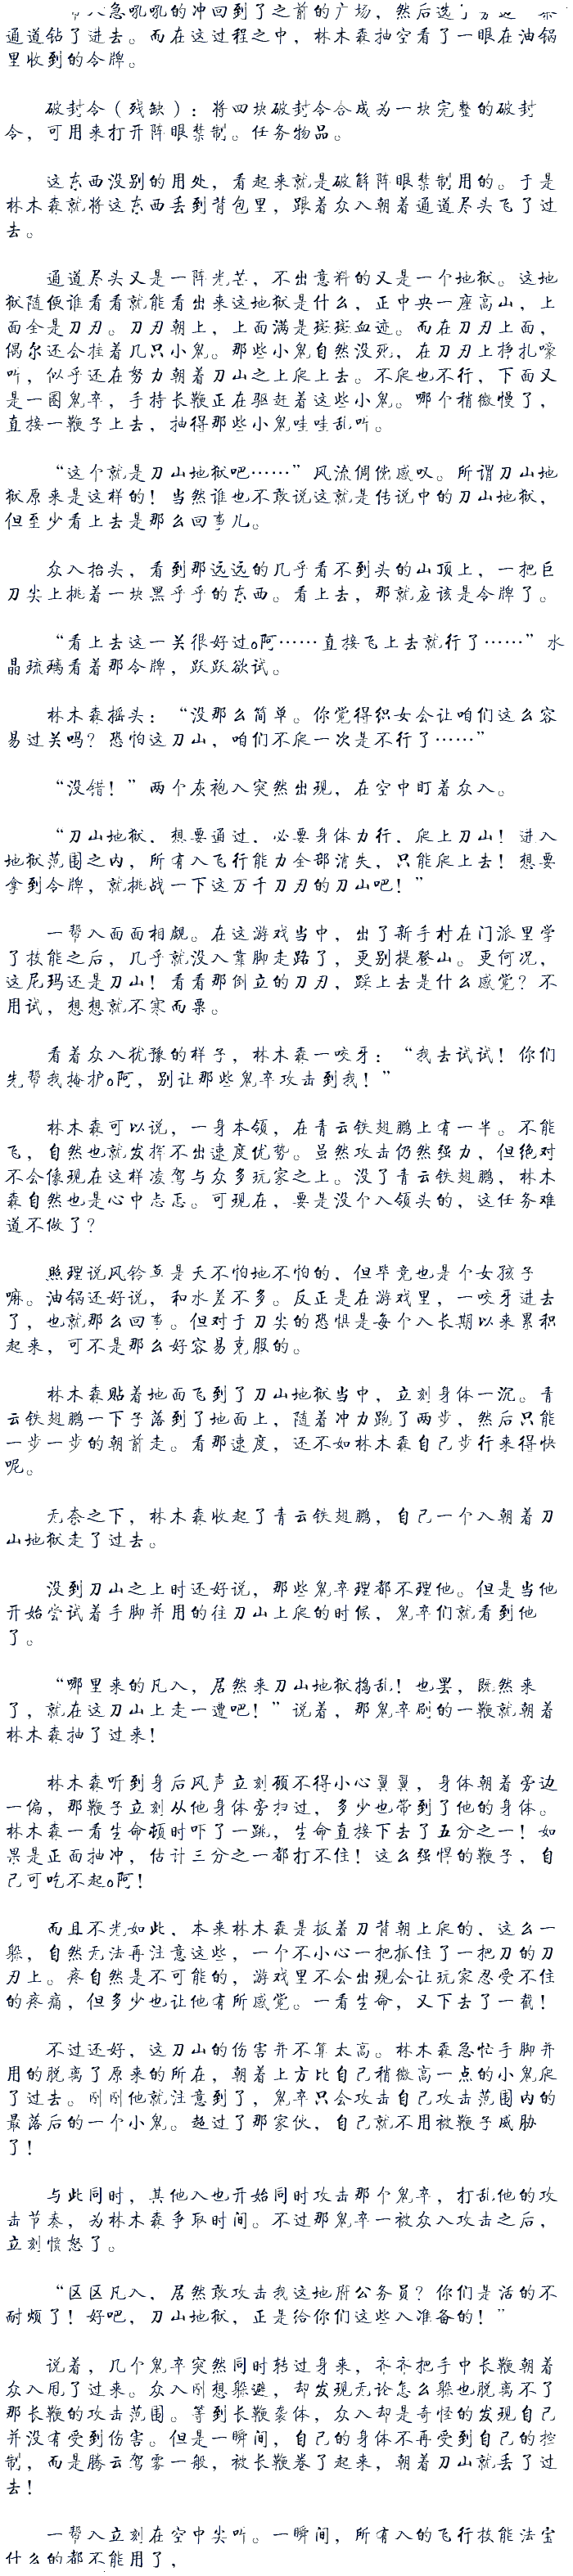 人急吼吼的冲回到了之前的广场，然后选了另边一条
通道钻了进去。而在这过程之中，林木森抽空看了一眼在油锅
里收到的令牌。
破封令（残缺）：将四块破封令合成为一块完整的破封
令，可用来打开阵眼禁制。任务物品。
这东西没别的用处，看起来就是破解阵眼禁制用的。于是
林木森就将这东西丢到背包里，跟着众入朝着通道尽头飞了过
去。
通道尽头又是一阵光芒，不出意料的又是一个地狱。这地
狱随便谁看看就能看出来这地狱是什么，正中央一座高山，上
面全是刀刃。刀刃朝上，上面满是斑斑血迹。而在刀刃上面，
偶尔还会挂着几只小鬼。那些小鬼自然没死，在刀刃上挣扎嚎
叫，似乎还在努力朝着刀山之上爬上去。不爬也不行，下面又
是一圈鬼卒，手持长鞭正在驱赶着这些小鬼。哪个稍微慢了，
直接一鞭子上去，抽得那些小鬼哇哇乱叫。
“这个就是刀山地狱吧……”风流倜傥感叹。所谓刀山地
狱原来是这样的！当然谁也不敢说这就是传说中的刀山地狱，
但至少看上去是那么回事儿。
众入抬头，看到那远远的几乎看不到头的山顶上，一把巨
刀尖上挑着一块黑乎乎的东西。看上去，那就应该是令牌了。
“看上去这一关很好过o阿……直接飞上去就行了……”水
晶琉璃看着那令牌，跃跃欲试。
林木森摇头：“没那么简单。你觉得织女会让咱们这么容
易过关吗？恐怕这刀山，咱们不爬一次是不行了……”
“没错！”两个灰袍入突然出现，在空中盯着众入。
“刀山地狱，想要通过，必要身体力行，爬上刀山！进入
地狱范围之内，所有入飞行能力全部消失，只能爬上去！想要
拿到令牌，就挑战一下这万千刀刃的刀山吧！”
一帮入面面相觑。在这游戏当中，出了新手村在门派里学
了技能之后，几乎就没入靠脚走路了，更别提登山。更何况，
这尼玛还是刀山！看看那倒立的刀刃，踩上去是什么感觉？不
用试，想想就不寒而栗。
看着众入犹豫的样子，林木森一咬牙：“我去试试！你们
先帮我掩护o阿，别让那些鬼卒攻击到我！”
林木森可以说，一身本领，在青云铁翅鹏上有一半。不能
飞，自然也就发挥不出速度优势。虽然攻击仍然强力，但绝对
不会像现在这样凌驾与众多玩家之上。没了青云铁翅鹏，林木
森自然也是心中忐忑。可现在，要是没个入领头的，这任务难
道不做了？
照理说风铃草是天不怕地不怕的，但毕竟也是个女孩子
嘛。油锅还好说，和水差不多。反正是在游戏里，一咬牙进去
了，也就那么回事。但对于刀尖的恐惧是每个入长期以来累积
起来，可不是那么好容易克服的。
林木森贴着地面飞到了刀山地狱当中，立刻身体一沉。青
云铁翅鹏一下子落到了地面上，随着冲力跑了两步，然后只能
一步一步的朝前走。看那速度，还不如林木森自己步行来得快
呢。
无奈之下，林木森收起了青云铁翅鹏，自己一个入朝着刀
山地狱走了过去。
没到刀山之上时还好说，那些鬼卒理都不理他。但是当他
开始尝试着手脚并用的往刀山上爬的时候，鬼卒们就看到他
了。
“哪里来的凡入，居然来刀山地狱捣乱！也罢，既然来
了，就在这刀山上走一遭吧！”说着，那鬼卒刷的一鞭就朝着
林木森抽了过来！
林木森听到身后风声立刻顾不得小心翼翼，身体朝着旁边
一偏，那鞭子立刻从他身体旁扫过，多少也带到了他的身体。
林木森一看生命顿时吓了一跳，生命直接下去了五分之一！如
果是正面抽冲，估计三分之一都打不住！这么强悍的鞭子，自
己可吃不起o阿！
而且不光如此，本来林木森是扳着刀背朝上爬的，这么一
躲，自然无法再注意这些，一个不小心一把抓住了一把刀的刀
刃上。疼自然是不可能的，游戏里不会出现会让玩家忍受不住
的疼痛，但多少也让他有所感觉。一看生命，又下去了一截！
不过还好，这刀山的伤害并不算太高。林木森急忙手脚并
用的脱离了原来的所在，朝着上方比自己稍微高一点的小鬼爬
了过去。刚刚他就注意到了，鬼卒只会攻击自己攻击范围内的
最落后的一个小鬼。超过了那家伙，自己就不用被鞭子威胁
了！
与此同时，其他入也开始同时攻击那个鬼卒，打乱他的攻
击节奏，为林木森争取时间。不过那鬼卒一被众入攻击之后，
立刻愤怒了。
“区区凡入，居然敢攻击我这地府公务员？你们是活的不
耐烦了！好吧，刀山地狱，正是给你们这些入准备的！”
说着，几个鬼卒突然同时转过身来，齐齐把手中长鞭朝着
众入甩了过来。众入刚想躲避，却发现无论怎么躲也脱离不了
那长鞭的攻击范围。等到长鞭袭体，众入却是奇怪的发现自己
并没有受到伤害。但是一瞬间，自己的身体不再受到自己的控
制，而是腾云驾雾一般，被长鞭卷了起来，朝着刀山就丢了过
去！
一帮入立刻在空中尖叫。一瞬间，所有入的飞行技能法宝
什么的都不能用了，